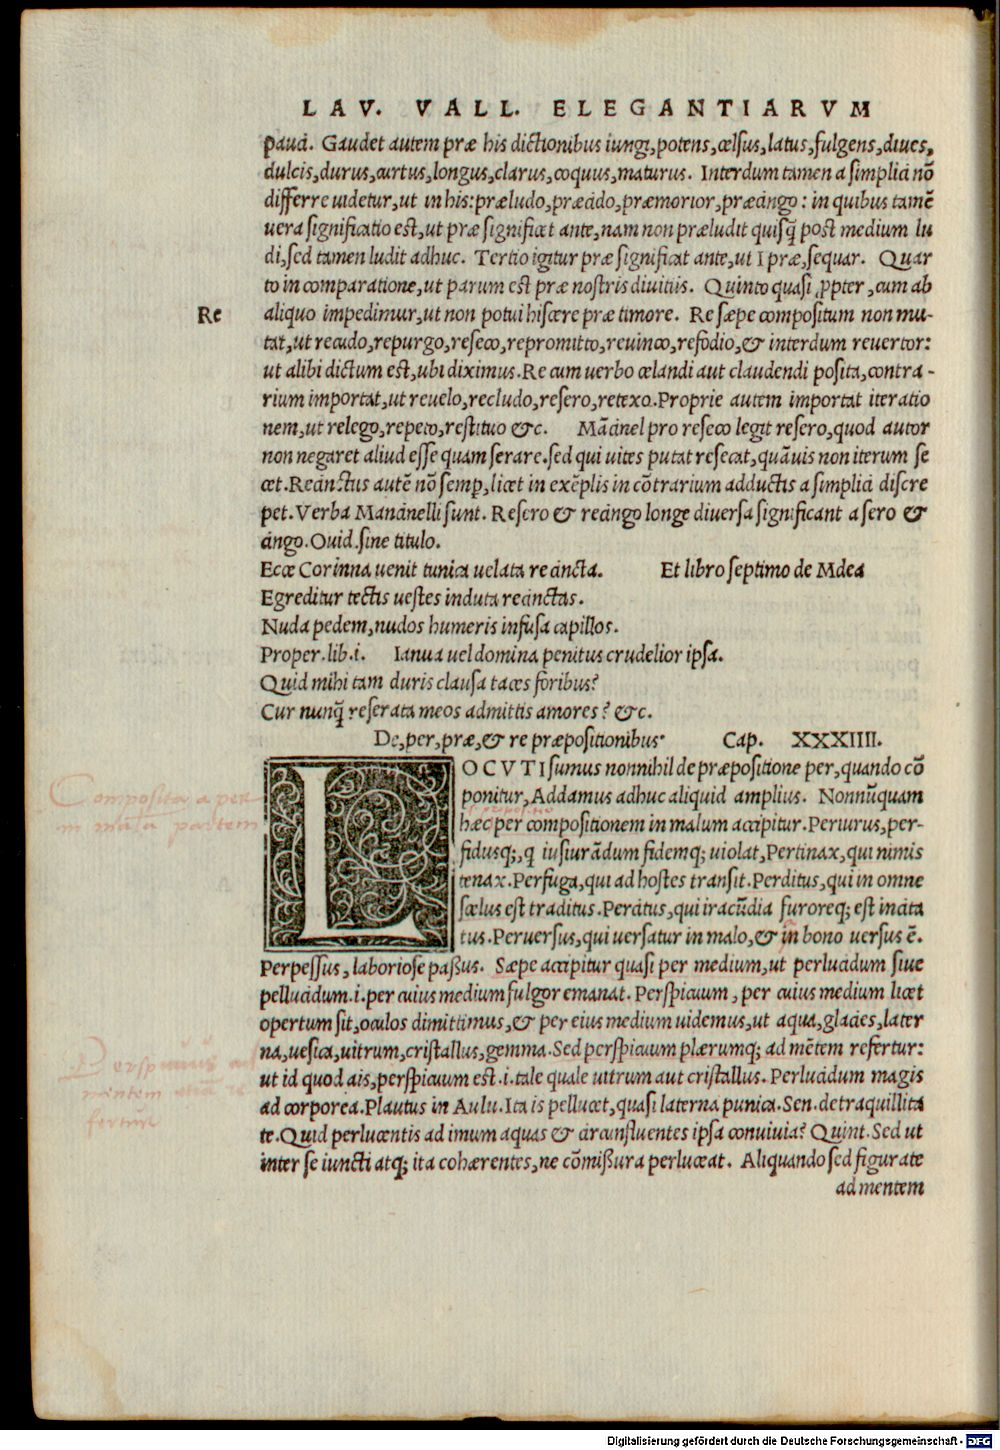 LAV. VALL. ELEGANTIARVM
pauci. Gaudet autem præ his dictionibus iungi, potens, celsus, latus, fulgens, diues,
dulcis, durus, curtus, longus, clarus, coquus, maturus. Interdum tamen a simplici nō
differre uidetur, ut in his: præludo, præcido, præmorior, præcingo: in quibus tamē
uera significatio est, ut præ significet ante, nam non præludit quisq̄ post medium lu
di, sed tamen ludit adhuc. Tertio igitur præ significat ante, ut I præ, sequar. Quar
to in comparatione, ut parum est præ nostris diuitiis. Quinto quasi ꝓpter, cum ab
Re
aliquo impedimur, ut non potui hiscere præ timore. Re sæpe compositum non mu-
tat, ut recido, repurgo, reseco, repromitto, reuinco, refodio, & interdum reuertor:
ut alibi dictum est, ubi diximus. Re cum uerbo celandi aut claudendi posita, contra-
rium importat, ut reuelo, recludo, resero, retexo. Proprie autem importat iteratio
nem, ut relego, repeto, restituo &c. Mācinel pro reseco legit resero, quod autor
non negaret aliud esse quam serare. sed qui uites putat resecat, quāuis non iterum se
cet. Recinctus autē nō semp, licet in exēplis in cōtrarium adductis a simplici discre
pet. Verba Mancinelli sunt. Resero & recingo longe diuersa significant a sero &
cingo. Ouid. sine titulo.
Ecce Corinna uenit tunica uelata recincta. Et libro septimo de Mdea
Egreditur tectis uestes induta recinctas.
Nuda pedem, nudos humeris infusa capillos.
Proper. lib. i. Ianua uel domina penitus crudelior ipsa.
Quid mihi tam duris clausa taces foribus?
Cur nunq̄ reserata meos admittis amores? &c.
De, per, præ, & re præpositionibus. Cap. XXXIIII.
LOCVTI sumus nonnihil de præpositione per, quando cō
ponitur, Addamus adhuc aliquid amplius. Nonnūquam
Composita a per
in mala partem
hæc per compositionem in malum accipitur. Periurus, per-
fidusq;, q iusiurādum fidemq; uiolat, Pertinax, qui nimis
tenax. Perfuga, qui ad hostes transit. Perditus, qui in omne
scelus est traditus. Percitus, qui iracūdia furoreq; est incita
tus. Peruersus, qui uersatur in malo, & in bono uersus ē.
Perpessus, laboriose passus. Sæpe accipitur quasi per medium, ut perlucidum siue
pellucidum. i. per cuius medium fulgor emanat. Perspicuum, per cuius medium licet
opertum sit, oculos dimittimus, & per eius medium uidemus, ut aqua, glacies, later
na, uesica, uitrum, cristallus, gemma. Sed perspicuum plærumq; ad mētem refertur:
Perspicuus ad
mentem etiā re
fertur
ut id quod ais, perspicuum est. i. tale quale uitrum aut cristallus. Perlucidum magis
ad corporea. Plautus in Aulu. Ita is pellucet, quasi laterna punica. Sen. de traquillita
te. Quid perlucentis ad imum aquas & circunfluentes ipsa conuiuia? Quint. Sed ut
inter se iuncti atq; ita cohærentes, ne cōmissura perluceat. Aliquando sed figurate
ad mentem
Digitalisierung gefördert durch die Deutsche Forschungsgemeinschaft - DFG